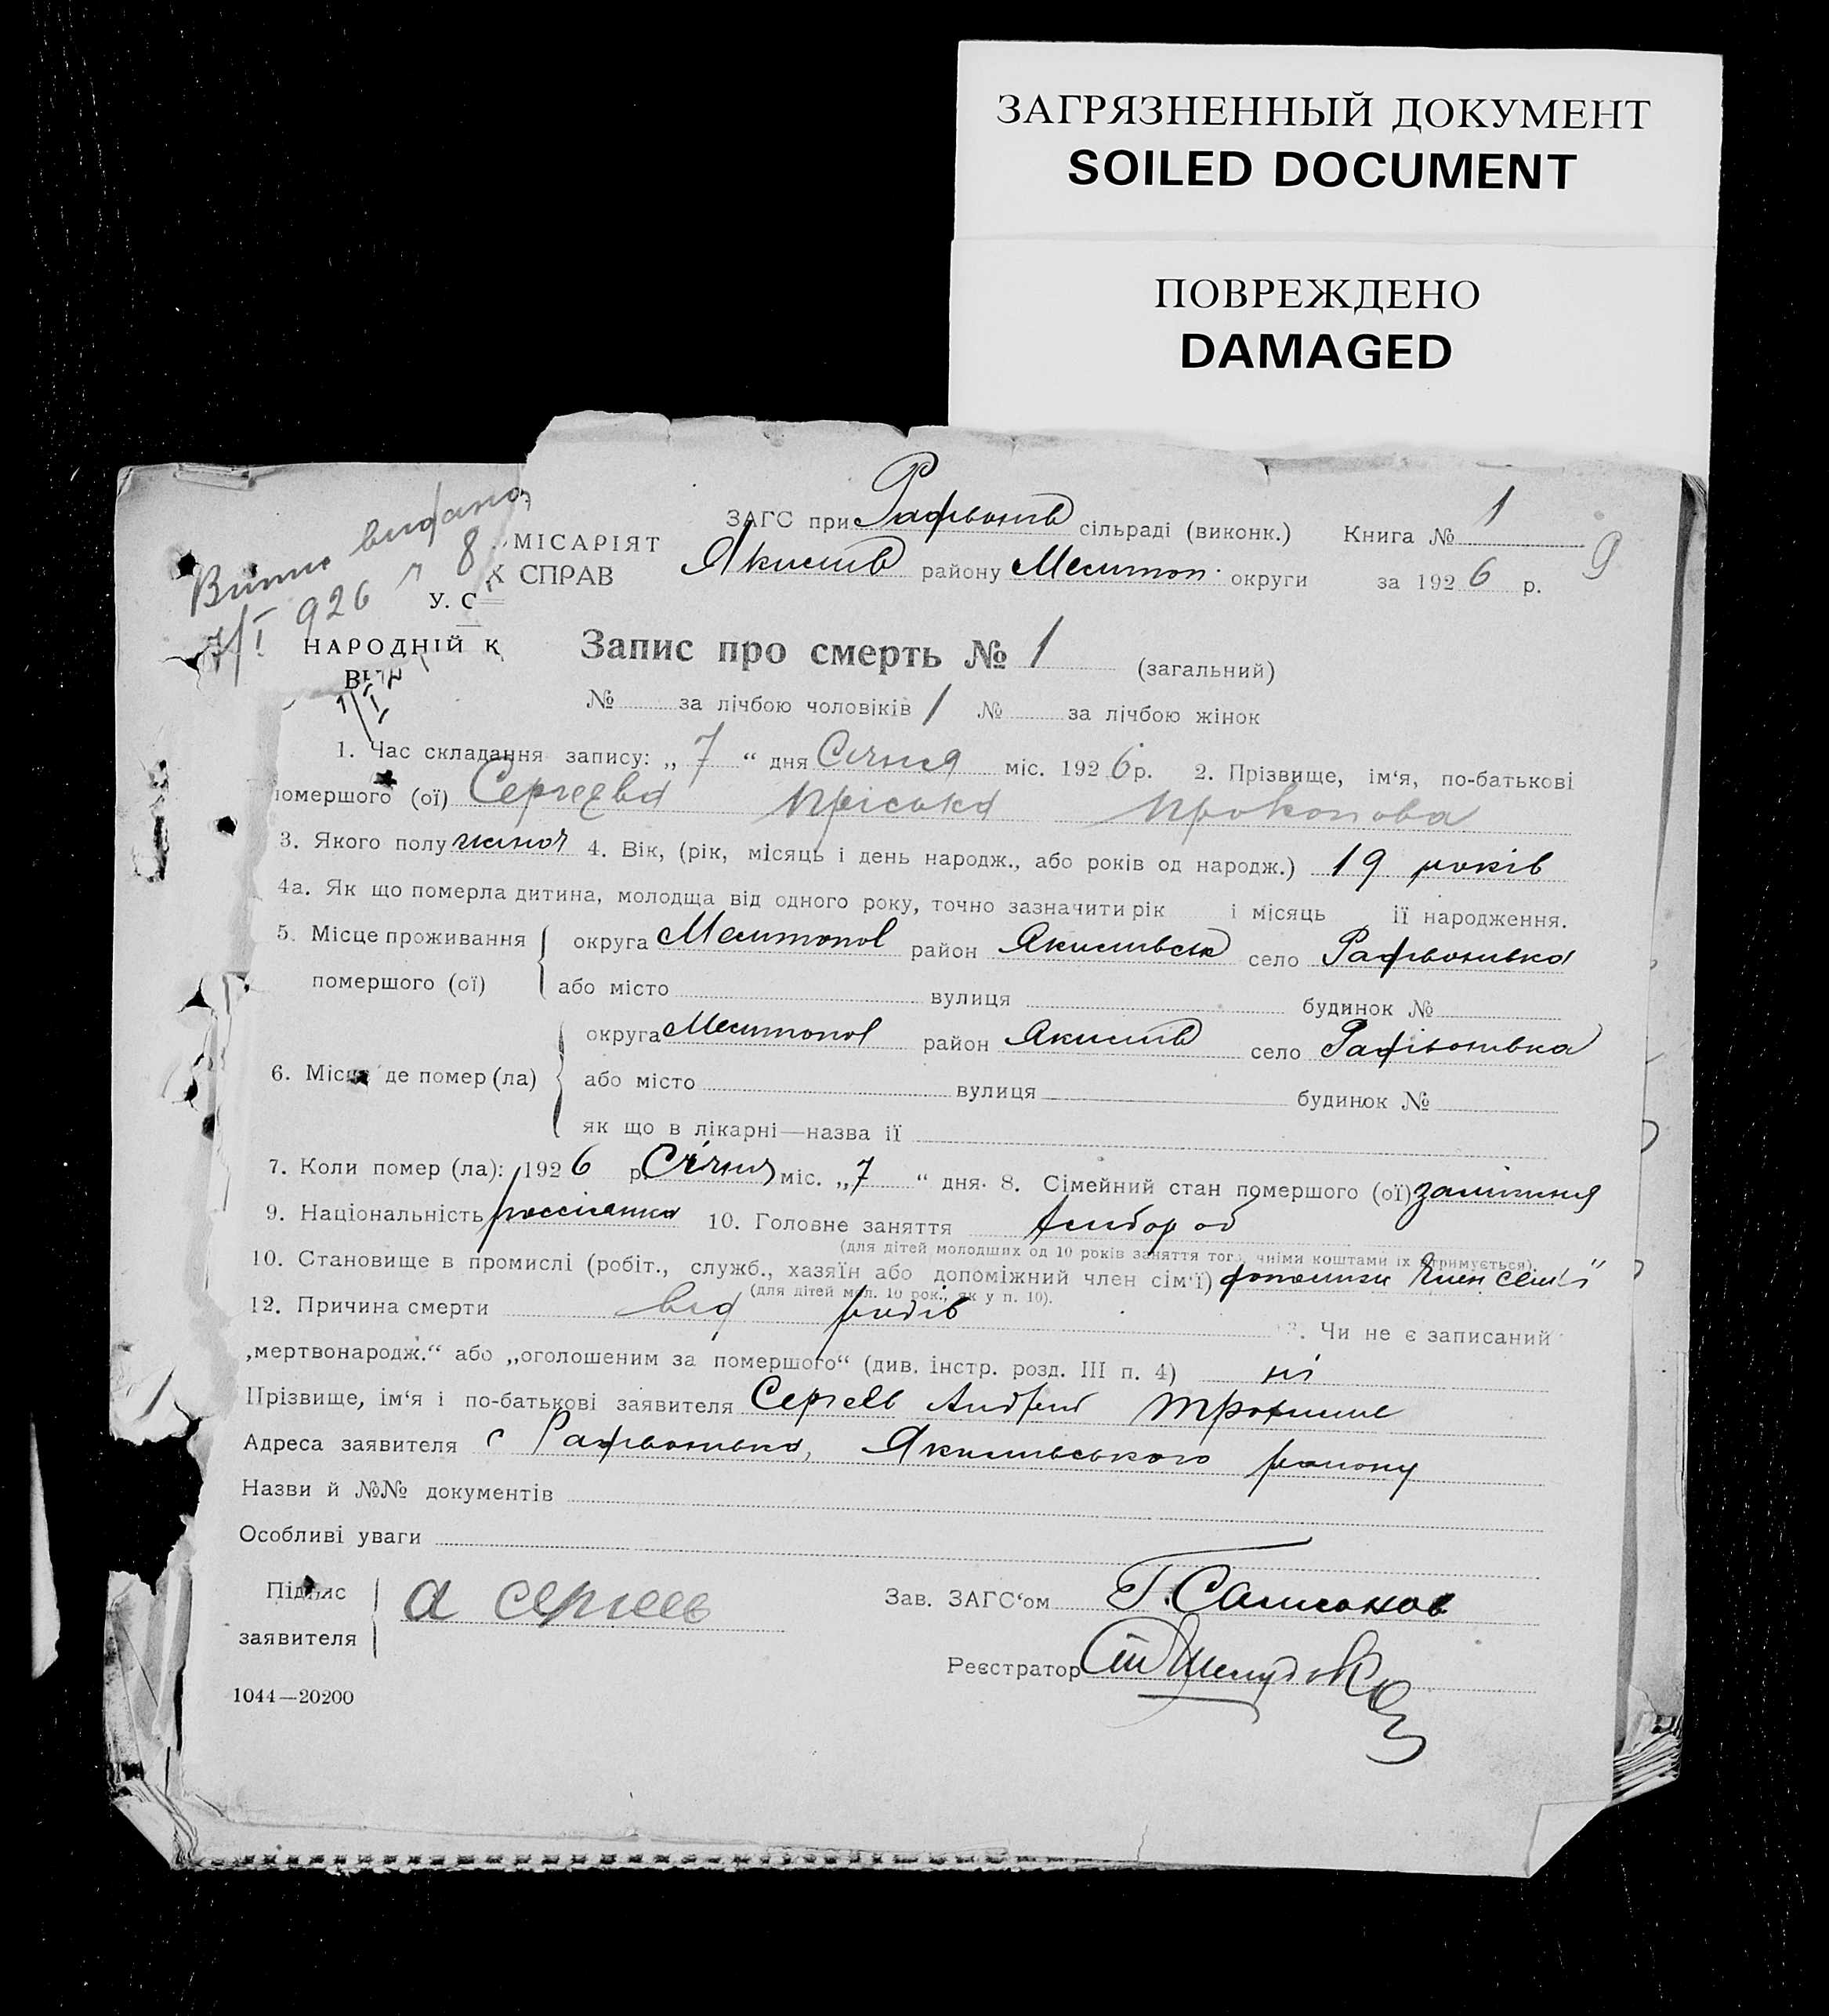 ЗАГРЯЗНЕННЫЙ ДОКУМЕНТ
SOILED DOCUMENT
ПОВРЕЖДЕНО
DAMAGED
видано
7/I 926 п 8
У. С
НАРОДНІЙ К МІСАРІЯТ
Х СПРАВ
ЗАГС при сільраді (виконк.) Книга № 1
9
Якимів району Мелитоп. округи за 1926 р.
Запис про смерть № 1 (загальний)
№ за лічбою чоловіків 1 № за лічбою жінок
1. Час складання запису: „ 7 “ дня Січня міс. 1926 р. 2. Прізвище, ім‘я, по-батькові
помершого (ої) Сергеєва Пріська Прокопова
3. Якого полу жіноч 4. Вік, (рік, місяць і день народж., або років од народж.) 19 років
4а. Як що померла дитина, молодща від одного року, точно зазначити рік і місяць її народження.
5. Місце проживання помершого (ої) округа Мелитопол район Якимівськ село Радівонівка
або місто вулиця будинок №
6. Місце де помер (ла) округа Мелитопол район Якимів село Радівонівка
або місто вулиця будинок №
як що в лікарні—назва її
7. Коли помер (ла): 1926 р. Січня міс. „ 7 “ дня. 8. Сімейний стан помершого (ої) замужня
9. Національність россіянка 10. Головне заняття хлібороб
(для дітей молодших од 10 років заняття того, чніми коштами їх утримується).
10. Становище в промислі (робіт., служб., хазяїн або допоміжний член сім‘ї) допоміжн член семьї
(для дітей мол. 10 рок., як у п. 10).
12. Причина смерти від родів . Чи не є записаний
„мертвонародж.“ або „оголошеним за помершого“ (див. інстр. розд. III п. 4) ні
Прізвище, ім‘я і по-батькові заявителя Сергеев Андрей
Адреса заявителя с Радівонівка, Якимівського району
Назви й №№ документів
Особливі уваги
Підпис заявителя а сергеев
Зав. ЗАГС‘ом Г. Самсонов
Реєстратор
1044—20200